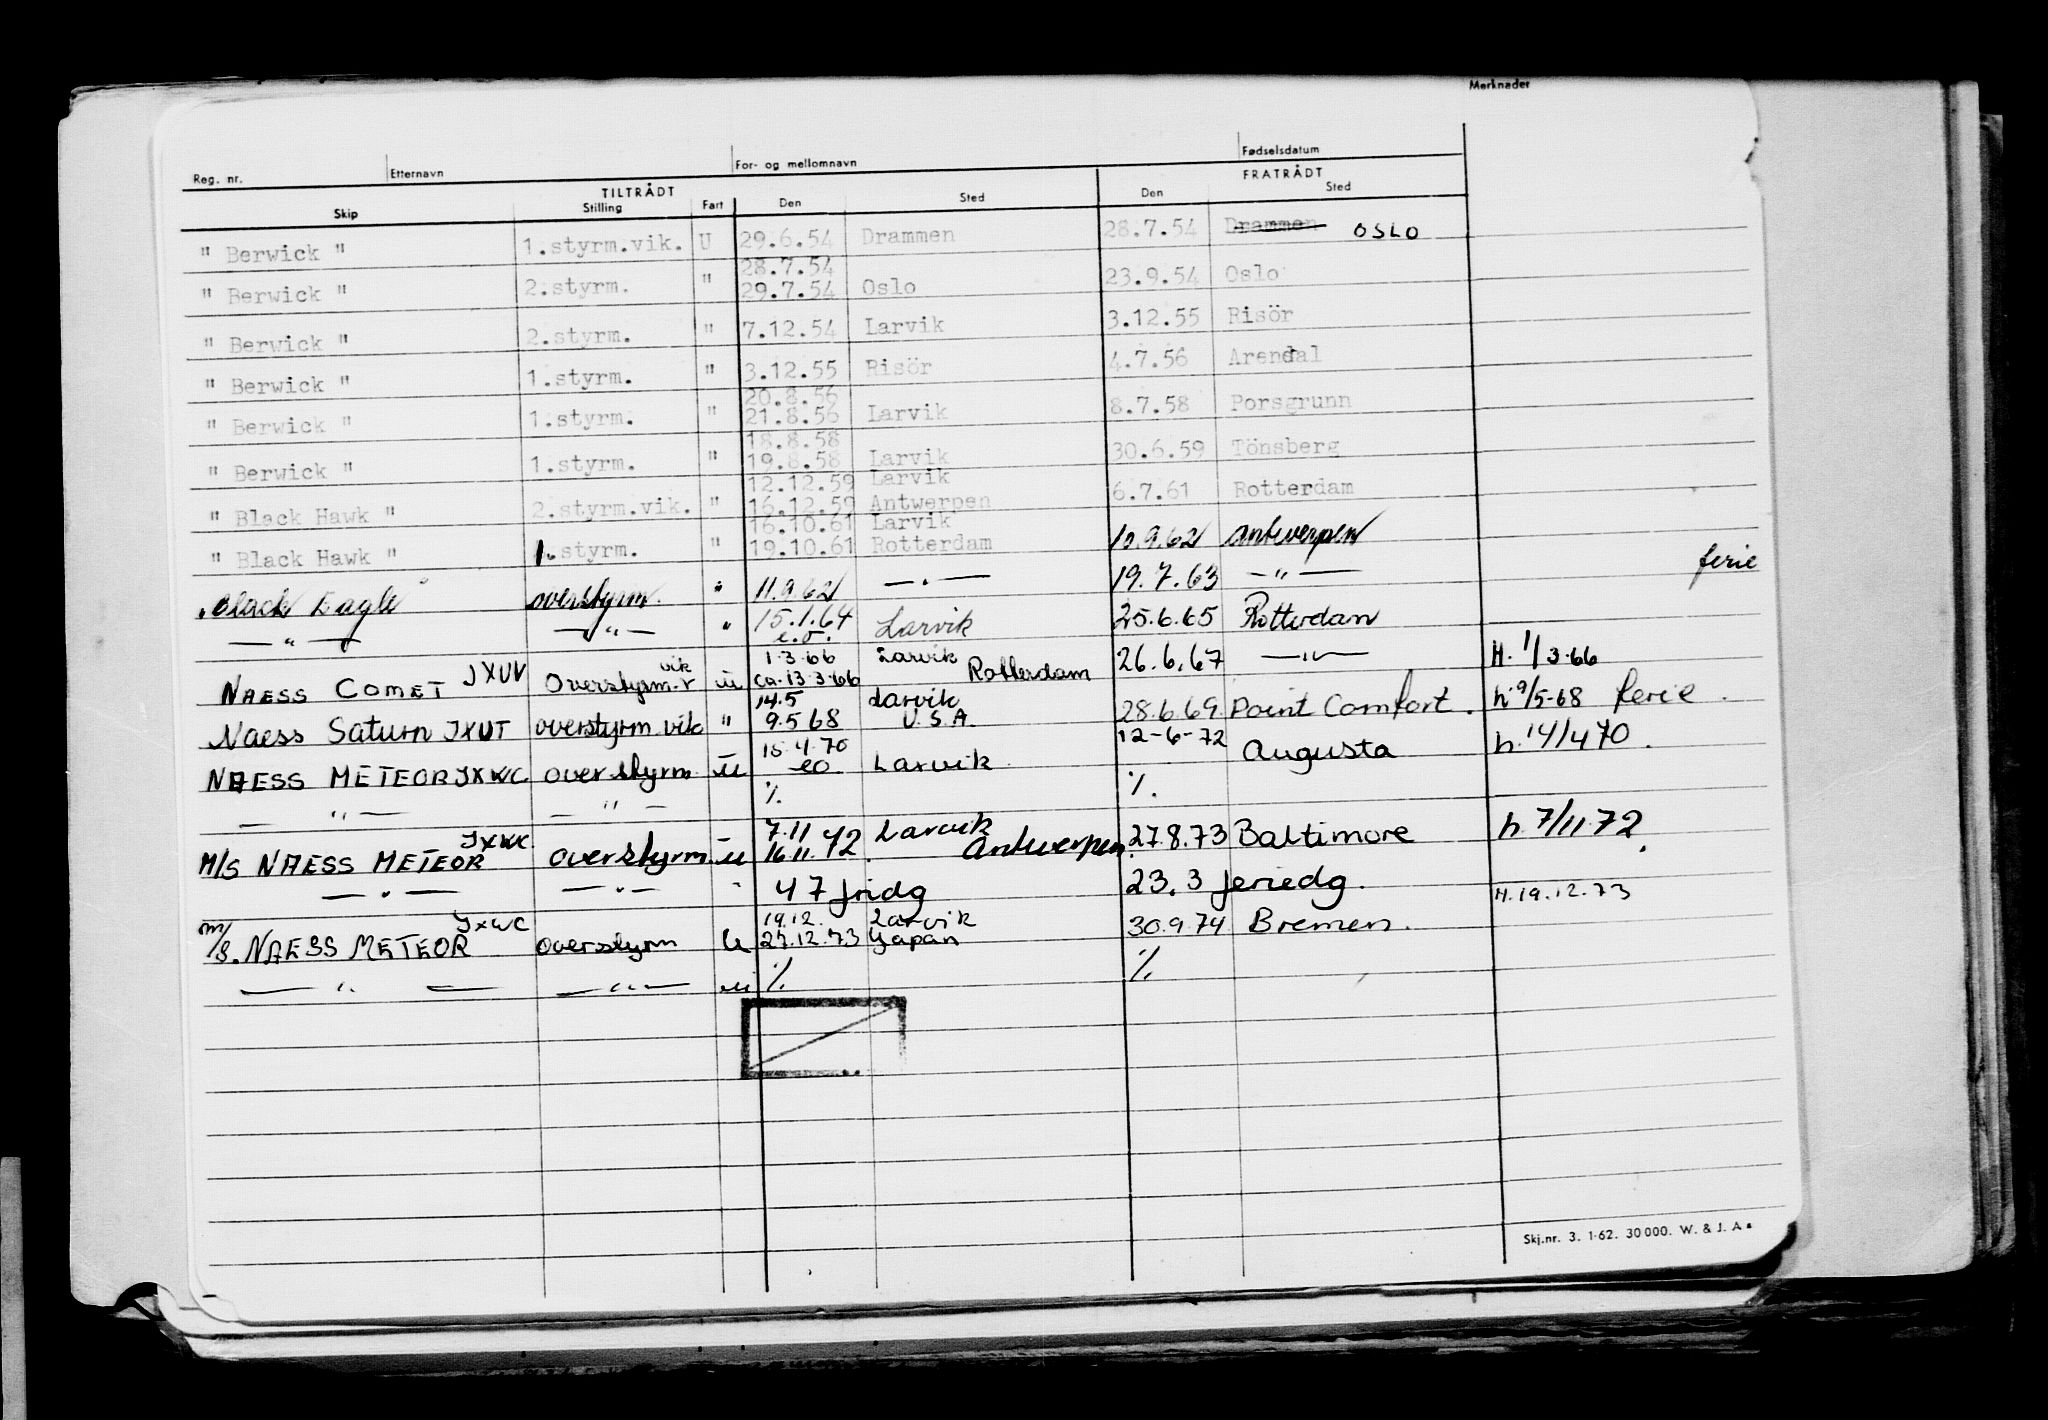 Merknader
Reg. nr. Etternavn For- og mellomnavn Fødselsdatum
TILTRÅDT FRATRÅDT
Skip Stilling Fart Den Sted Den Sted
" Berwick " 1.styrm.vik. U 29.6.54 Drammen 28.7.54 Drammen OSLO
28.7.54
" Berwick " 2.styrm. " 29.7.54 Oslo 23.9.54 Oslo
" Berwick " 2.styrm. " 7.12.54 Larvik 3.12.55 Risör
" Berwick " 1.styrm. " 3.12.55 Risör 4.7.56 Arendal
20.8.56
" Berwick " 1.styrm. " 21.8.56 Larvik 8.7.58 Porsgrunn
18.8.58
" Berwick " 1.styrm. " 19.8.58 Larvik 30.6.59 Tönsberg
12.12.59 Larvik
" Black Hawk " 2.styrm.vik. " 16.12.59 Antwerpen 6.7.61 Rotterdam
16.10.61 Larvik
" Black Hawk " 1.styrm. " 19.10.61 Rotterdam 10.9.62 Antwerpen
"Black Eagle" overstyrm. " 11.9.62 — " — 19.7.63 — " — ferie
— " — — " — " 15.1.64 e.o. Larvik 25.6.65 Rotterdam
1.3.66 Larvik
NAESS COMET JXUV Overstyrm. vik u ca. 13.3.66 Rotterdam 26.6.67 — " — H. 1/3.66
14.5 Larvik
Naess Saturn JXUT overstyrm vik " 9.5 68 U.S.A. 28.6.69 Point Comfort. h. 9/5-68 ferie.
NAESS METEOR JXWC overstyrm u 15.4.70 eo Larvik 12-6-72 Augusta h. 14/4 70.
— " — — " — %. %.
7.11 Larvik
M/S NAESS METEOR JXWC overstyrm. u 16.11.72. Antwerpen. 27.8.73 Baltimore h. 7/11.72.
— " — — " — " 47 fridg 23.3 feriedg.
19.12. Larvik H. 19.12.73
m/s. NAESS METEOR JXWC overstyrm u 27.12.73 Japan 30.9.74 Bremen.
— " — — " — u %. %.
Skj.nr. 3. 1-62. 30 000. W. & J. A.